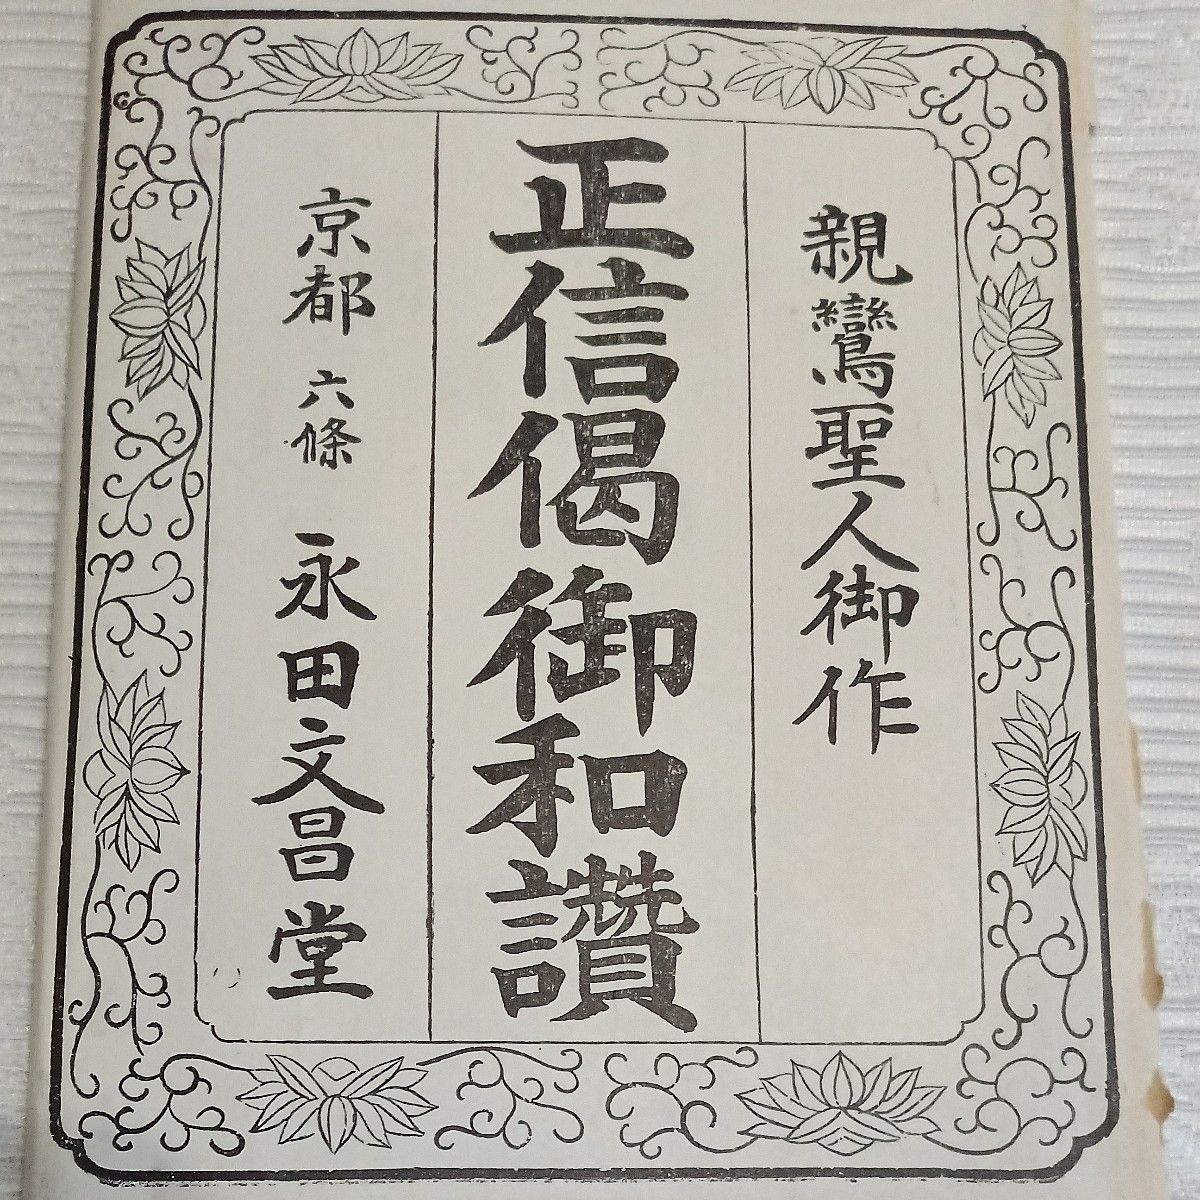 親鸞聖人御作
正信偈御和讃
京都 六條 永田文昌堂